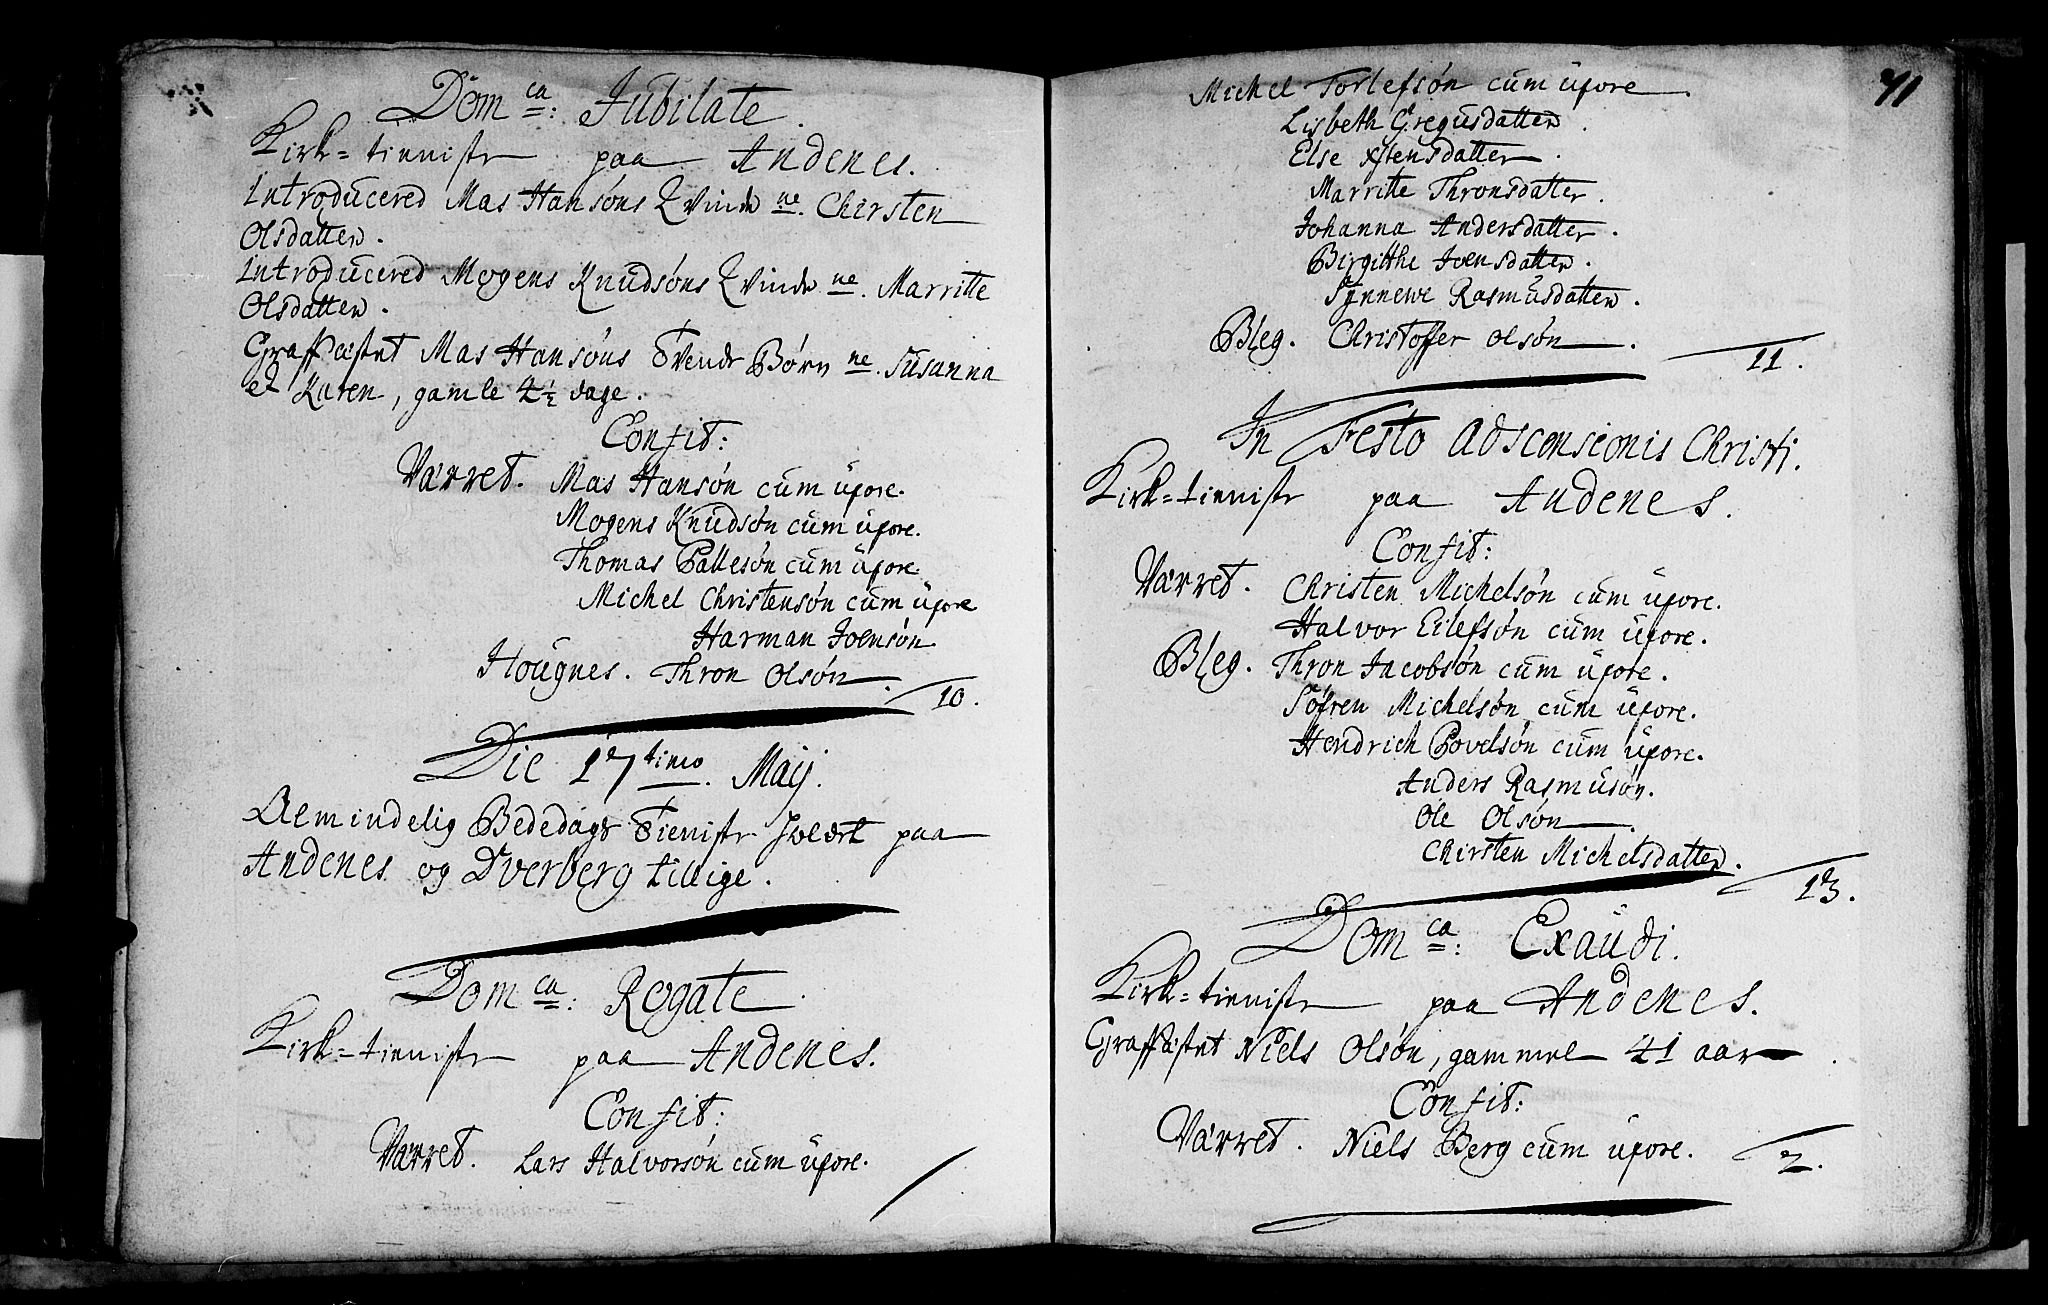 Dom ca: Jubilate.
Kirk=tienistr paa Andenes.
Introducered Mas Hansøns Qvinde ne. Chirsten
Olsdatter.
Introducered Mogens Knudsøns Qvinde ne. Marritte
Olsdatter.
Graffæstet Mas Hansøns Tvende Børn ne. Susanna
et Karen, gamle 4½ dage.
Confit:
Værret. Mas Hansøn cum uxore.
Mogens Knudsøn cum uxore.
Thomas Pallesøn cum uxore.
Michel Christensøn cum uxore
Harman Joensøn.
Hougnes. Thron Olsøn.
10.
Die 17timo. Maij.
Almindelig Bededags Tienistr holdt paa
Andenes og Dverberg tillige.
Dom ca: Rogate.
Kirk=tienistr paa Andenes.
Confit:
Værret. Lars Halvorsøn cum uxore.
71
Michel Torlefsøn cum uxore.
Lisbeth Gregusdatter.
Else Xstensdatter.
Marritte Thronsdatter.
Johanna Andersdatter.
Birgitthe Joensdatter.
Synnewe Rasmusdatter.
Bleg. Christoffer Olsøn.
11.
In Festo Adscensionis Christi.
Kirk=tienistr paa Andenes.
Confit:
Værret. Christen Michelsøn cum uxore.
Halvor Eilefsøn cum uxore.
Bleg. Thron Jacobsøn cum uxore.
Søfren Michelsøn cum uxore.
Hendrich Povelsøn cum uxore.
Anders Rasmusøn.
Ole Olsøn.
Chirsten Michelsdatter.
13.
Dom ca: Exaudi.
Kirk=tienistr paa Andenes.
Graffæstet Niels Olsøn, gammel 41 aar.
Confit:
Værret. Niels Berg cum uxore.
2.